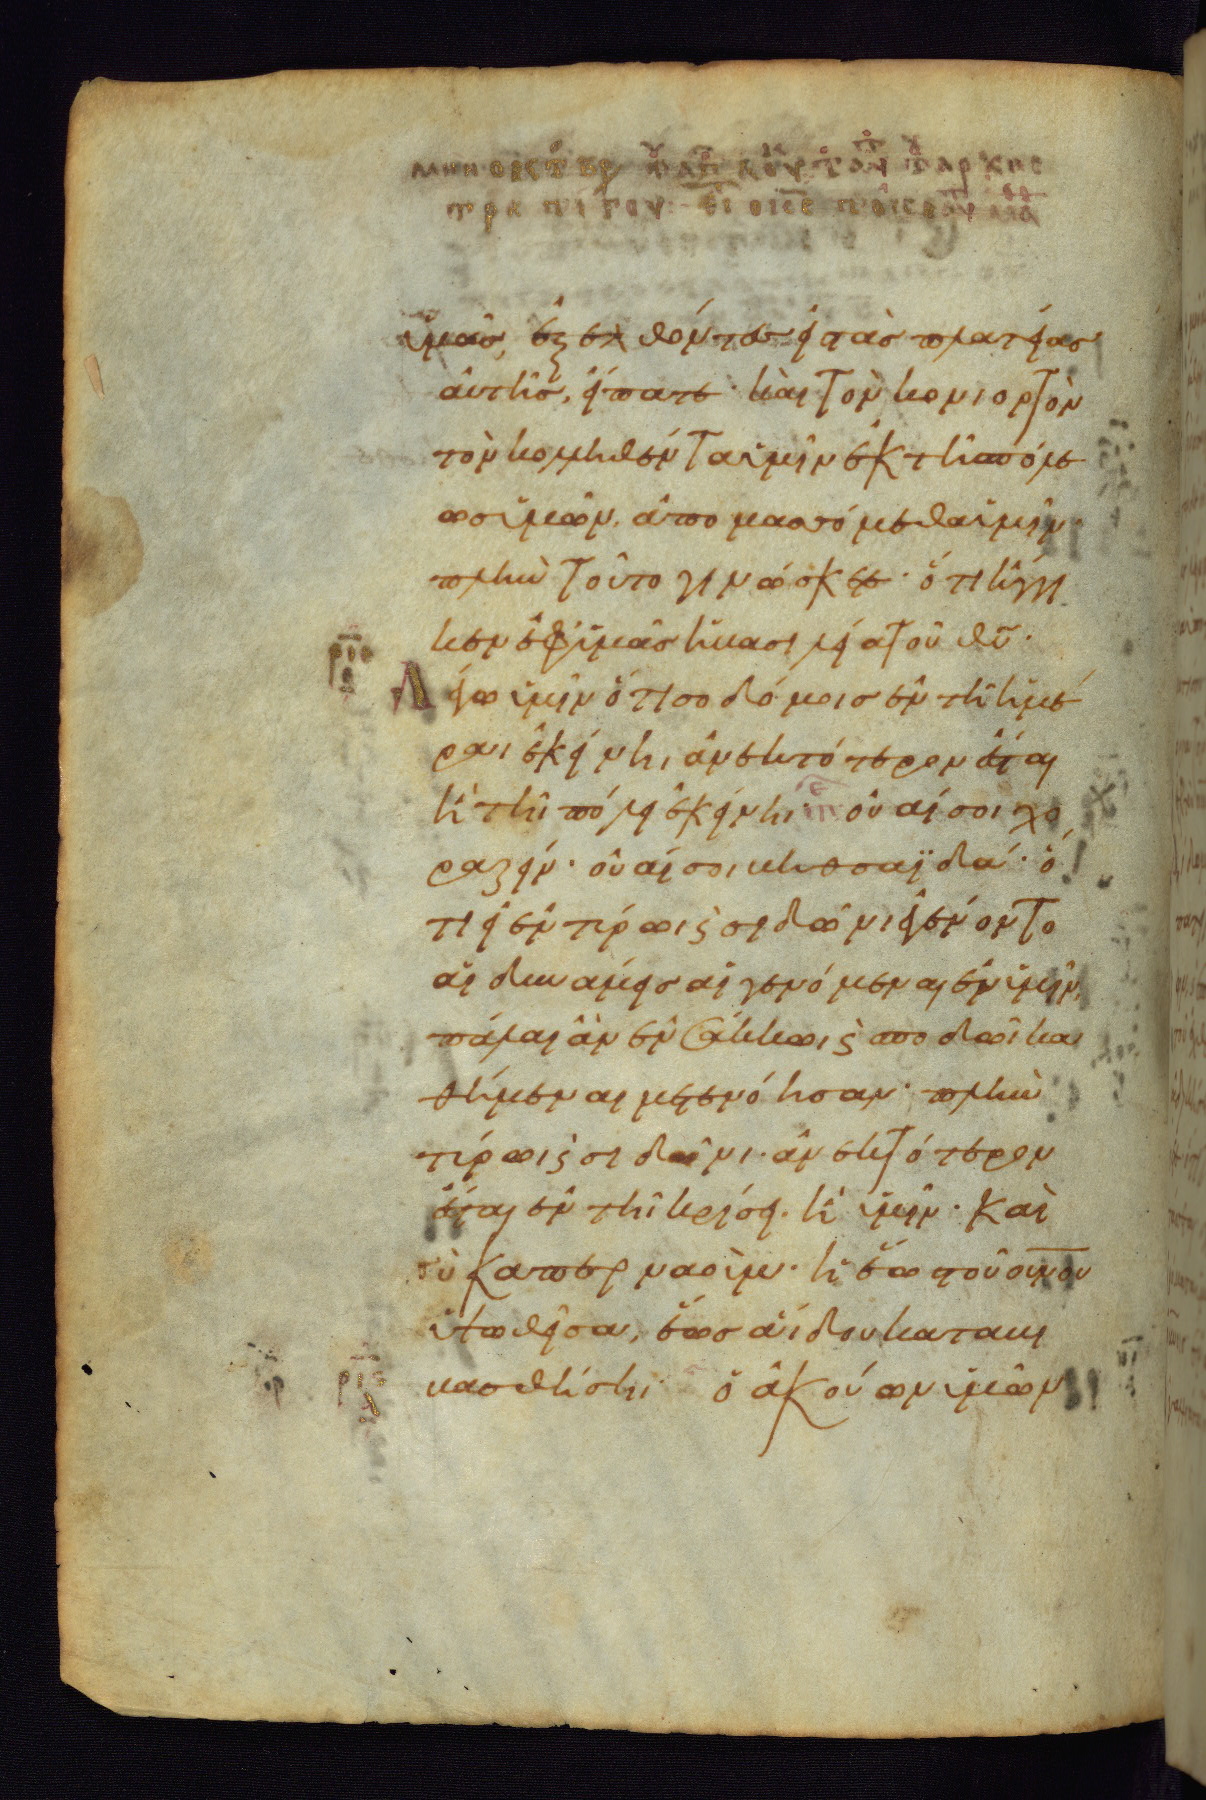 ὑμᾶς, ἐξελθόντες εἰς τὰς πλατείας
αὐτῆς, εἴπατε· καὶ τὸν κονιορτὸν
τὸν κολληθέντα ἡμῖν ἐκ τῆς πόλε
ως ὑμῶν, ἀπομασσόμεθα ὑμῖν·
πλὴν τοῦτο γινώσκετε· ὅτι ἤγγι
κεν ἐφ' ὑμᾶς ἡ βασιλεία τοῦ θῦ·
ριε
Λέγω ὑμῖν ὅτι σοδόμοις ἐν τῆι ἡμέ
ραι ἐκείνηι, ἀνεκτότερον ἔσται
ἢ τῆι πόλει ἐκείνηι· οὐαί σοι χο
ραζείν· οὐαί σοι βηθσαϊδά· ὅ
τι εἰ ἐν τύρωι ς σιδῶνι ἐγένοντο
αἱ δυνάμεις αἱ γενόμεναι ἐν ὑμῖν,
πάλαι ἂν ἐν σάκκωι ς σποδῶι κα
θήμεναι μετενόησαν· πλὴν
τύρωι ς σιδῶνι· ἀνεκτότερον
ἔσται ἐν τῆι κρίσει· ἢ ὑμῖν· καὶ
σὺ καπερναούμ· ἡ ἕως τοῦ οὐνου
ὑψωθεῖσα, ἕως ἅιδου καταβι
βασθήσηι· ὁ ἀκούων ὑμῶν
ρις